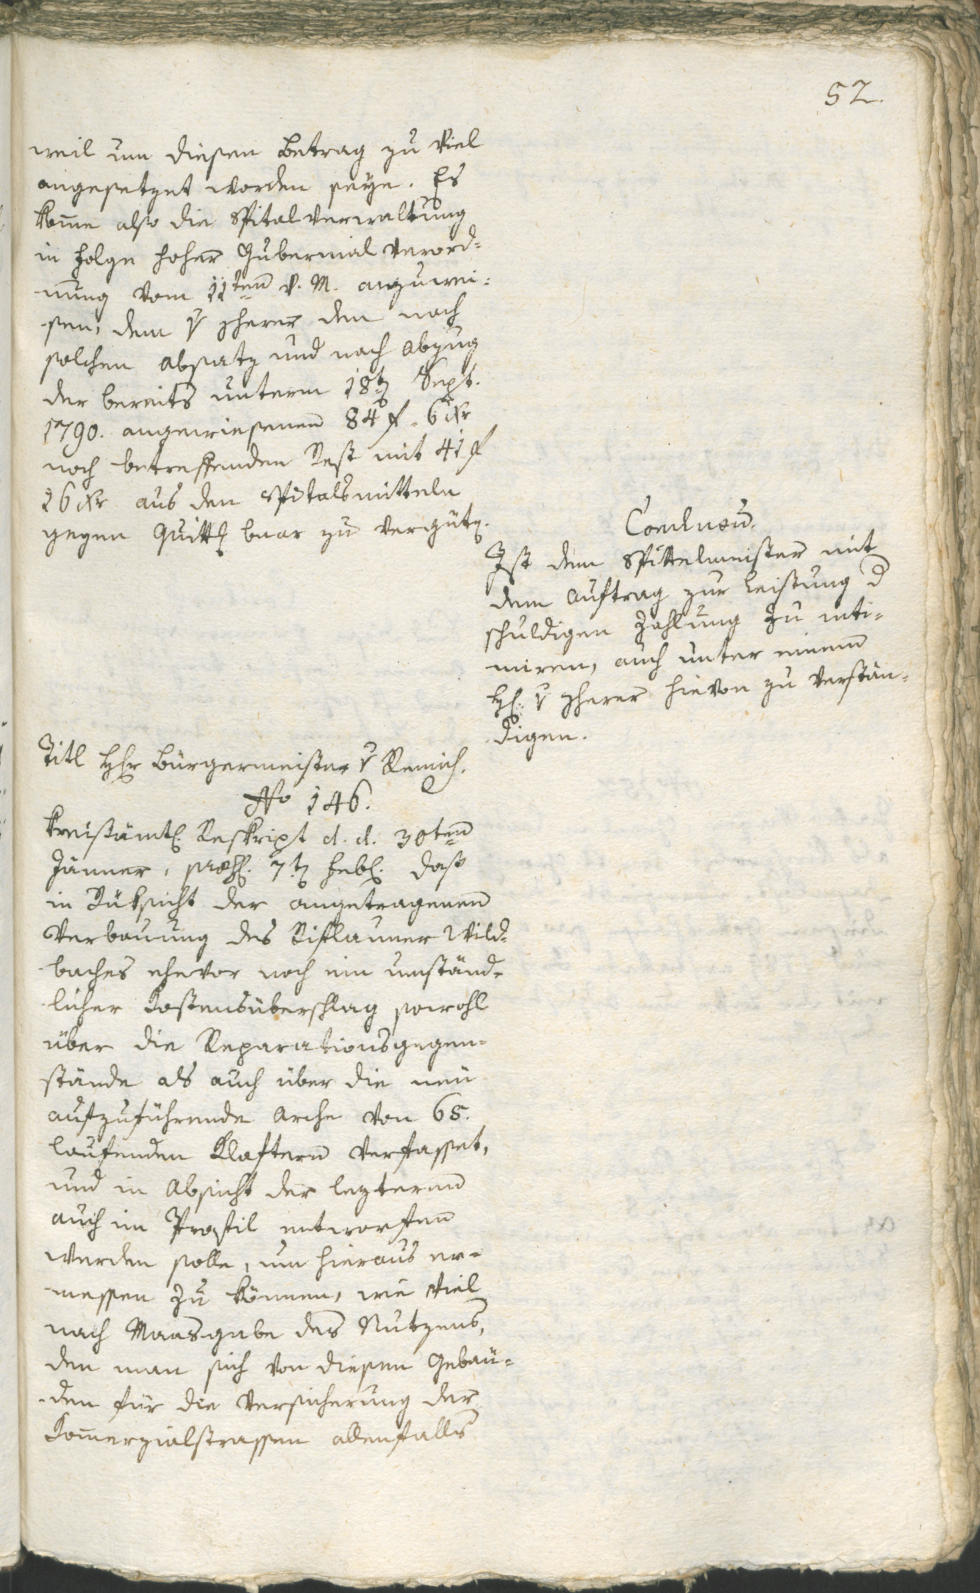 52.
weil um diesen Betrag zu viel
angesetzet worden seye. Es
kome also die Spitalverwaltung
in Folge hoher Gubernial Verord-
nung vom 11ten v. M. anzuwei-
sen, dem v den nach
solchen Absatz und nach Abzug
der bereits unterm 18t Sept.
1790. angewiesenen 84 f. 6 xr
noch betreffenden Rest mit 41 f
26 xr aus den Spitalsmitteln
gegen Quitt baar zu vergüt.
Conclusū.
Ist dem Spittelmeister mit
dem Auftrag zur Leistung d
schuldigen Zahlung zu inti-
miren, auch unter einem
H: v hievon zu verstän-
digen.
Titl Hr Bürgermeister v Remich.
No 146.
Kreisämtl Reskript d. d. 30ten
Jänner, 7t Feb. daß
in Rüksicht der angetragenen
Verbauung des Riflauner Wild-
baches ehevor noch ein umständ-
licher Kostensüberschlag sowohl
über die Reparationsgegen-
stände als auch über die neu
aufzuführende Arche von 65.
laufenden Klaftern verfasset,
und in Absicht der lezteren
auch im Profil entworfen
werden solle, um hieraus er-
messen zu können, wie viel
nach Maasgabe des Nutzens,
den man sich von diesen Gebäu-
den für die Versicherung der
Komerzialstrassen allenfalls